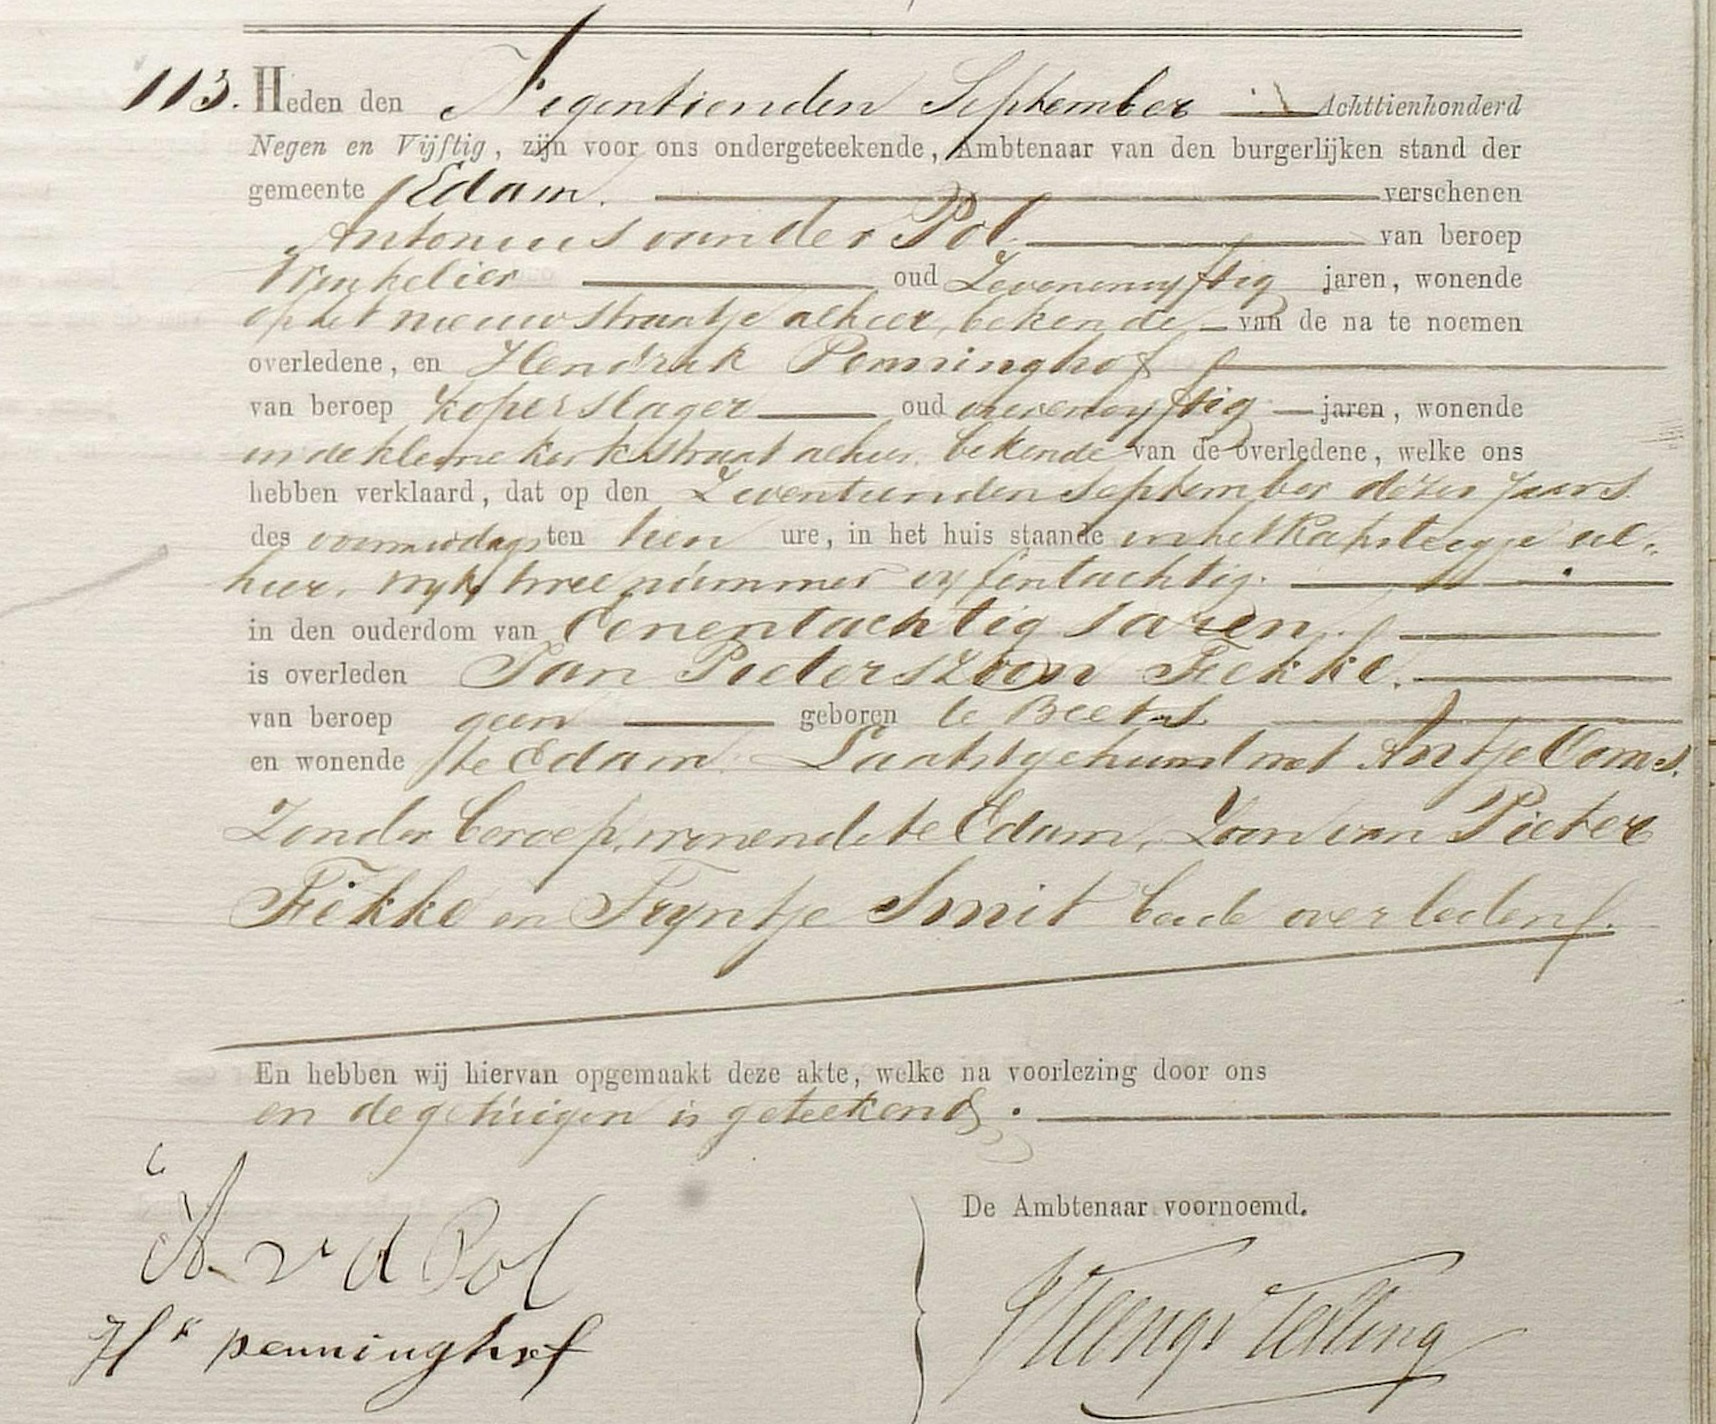 113. Heden den Negentienden September Achttienhonderd
Negen en Vijftig, zijn voor ons ondergeteekende, Ambtenaar van den burgerlijken stand der
gemeente Edam. verschenen
Antonius van der Pol van beroep
Winkelier oud Zevenenvyftig jaren, wonende
op het nieuwstraatje alhier, bekende van de na te noemen
overledene, en Hendrik Penninghof
van beroep koperslager oud jaren, wonende
in de kleine kerkstraat alhier, bekende van de overledene, welke ons
hebben verklaard, dat op den Zeventienden September dezes Jaars
des voormiddags ten tien ure, in het huis staande in het Kapsteegje al-
hier, wyk twee nummer vyfentachtig.
in den ouderdom van Eenentachtig Jaren.
is overleden Jan Pieterszoon Fekke.
van beroep geen geboren te Beets
en wonende te Edam. Laatst gehuwd met Antje Coms.
Zonder beroep, wonende te Edam, Zoon van Pieter
Fekke en Tryntje Smit beide overleden.
En hebben wij hiervan opgemaakt deze akte, welke na voorlezing door ons
en de getuigen is geteekend.
De Ambtenaar voornoemd.
A v d Pol
Hk penninghof